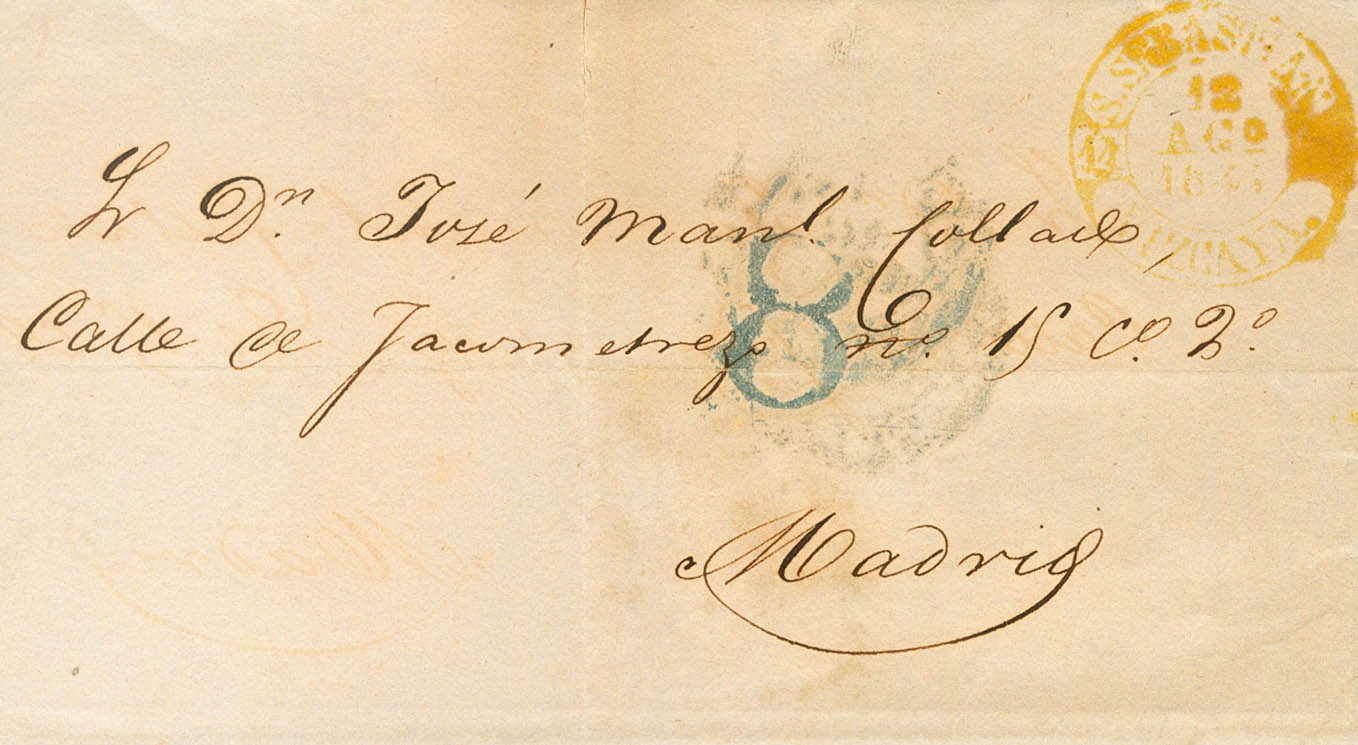 Sr Dn. José Manl. Collado,
Calle de Jacometrezo no. 15 co. 2o.
Madrid
8
S. SEBASTIAN
12
AGO
VIZCAYA.